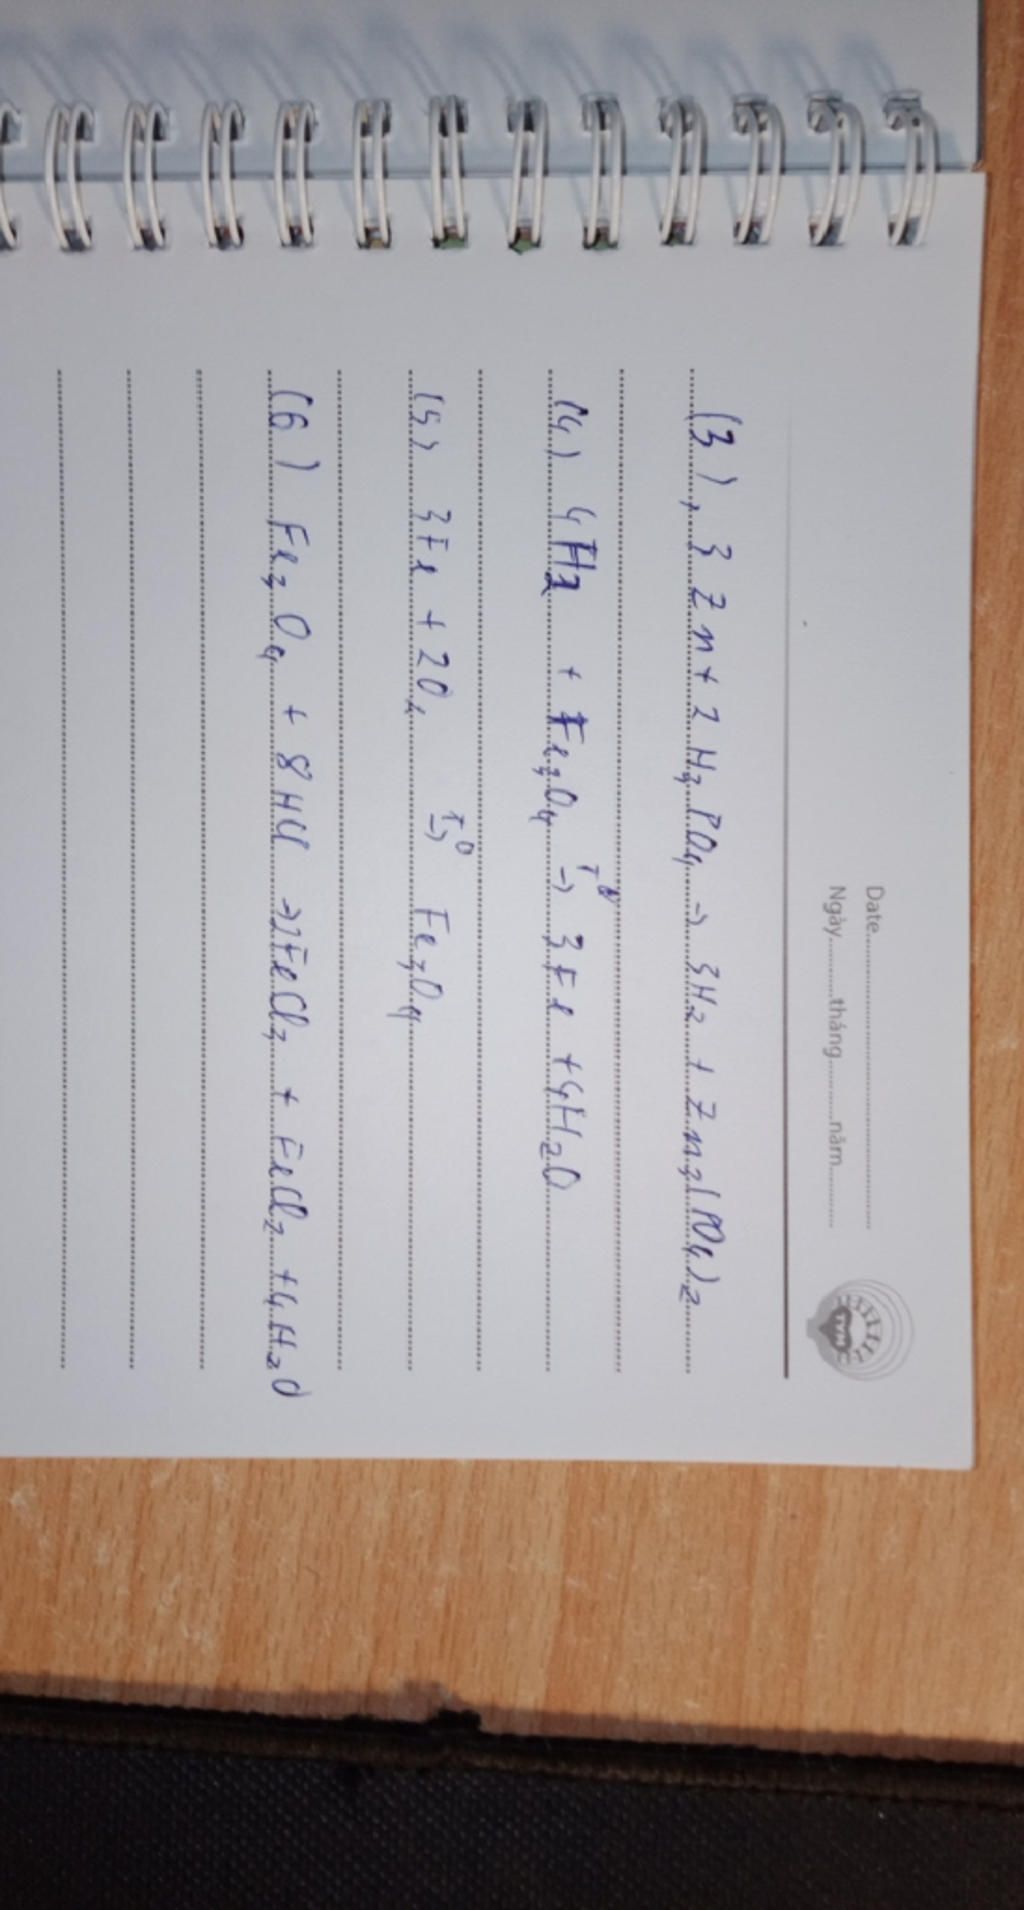 Date
Ngày tháng năm
(3), 3 Zn + 2 H₃PO₄ → 3H₂ + Zn₃(PO₄)₂
(4) 4H₂ + Fe₃O₄ T⁰→ 3Fe + 4H₂O
(5) 3Fe + 2O₂ T⁰→ Fe₃O₄
(6) Fe₃O₄ + 8HCl → 2FeCl₃ + FeCl₂ + 4H₂O